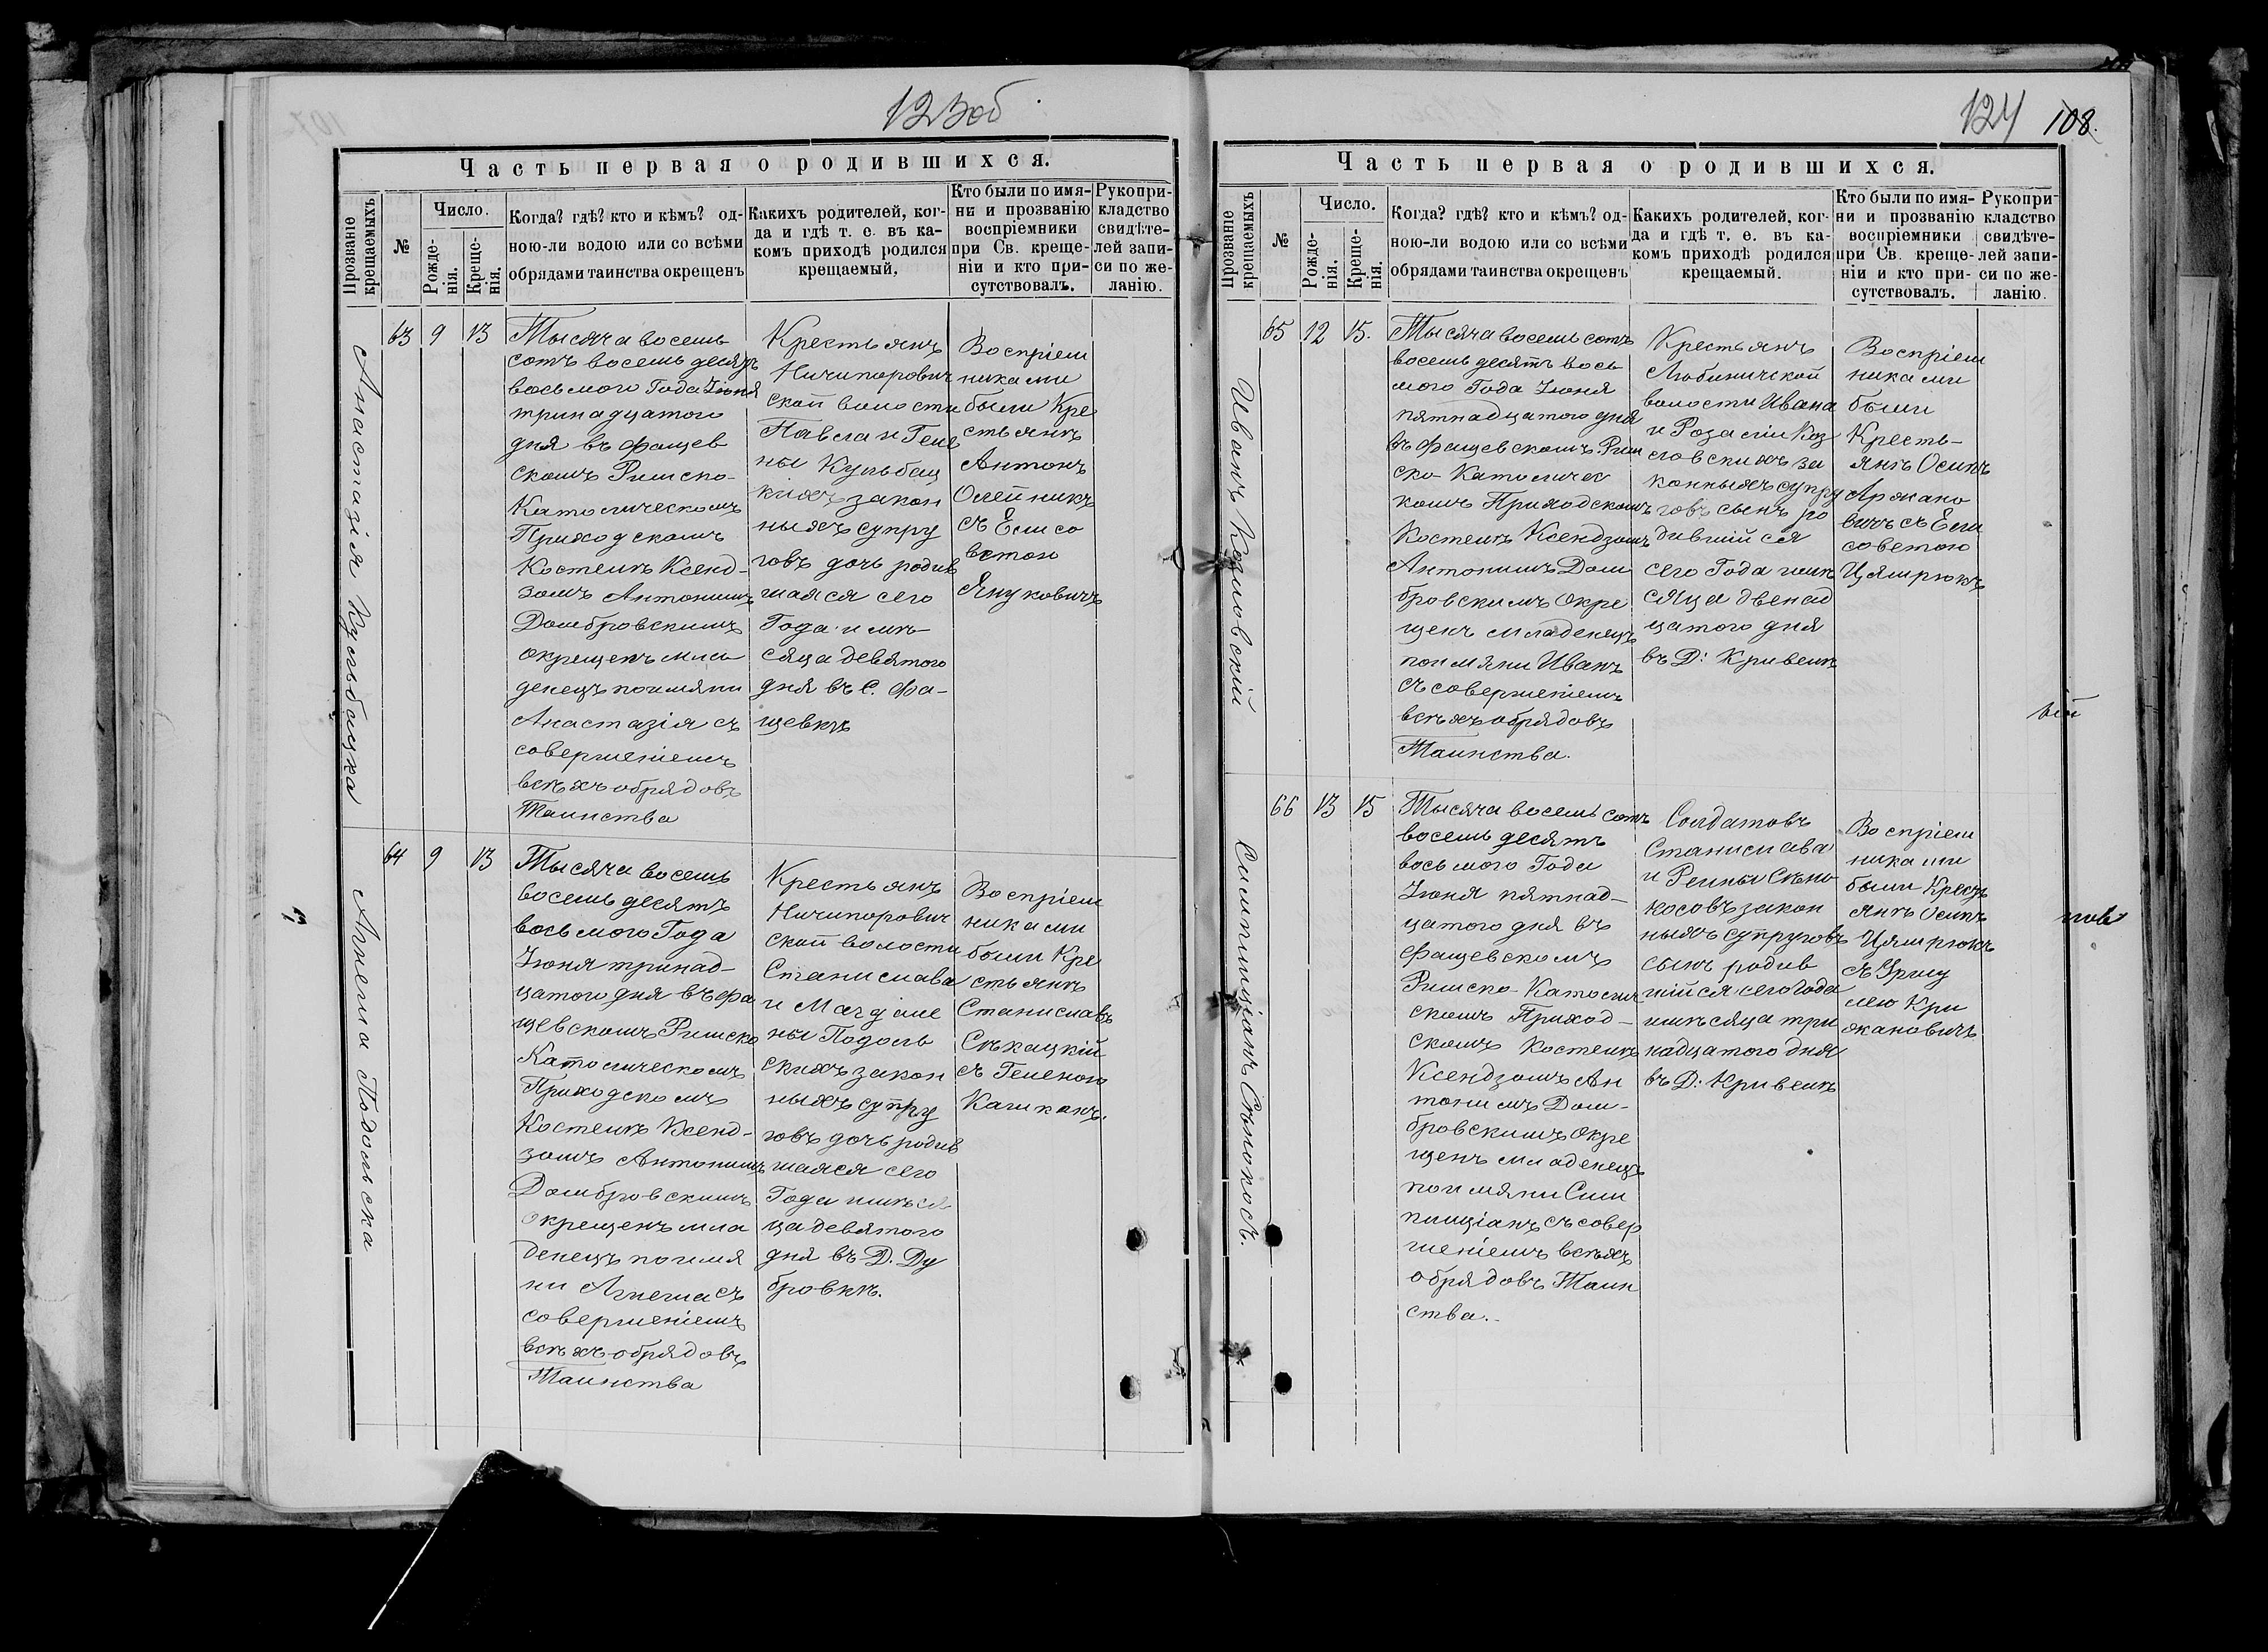 123об
Часть первая о родившихся.
Прозваніе крещаемыхъ
№
Число.
Рожденія.
Крещенія.
Когда? гдѣ? кто и кѣмъ? од-
ною-ли водою или со всѣми
обрядами таинства окрещенъ
Какихъ родителей, ког-
да и гдѣ т. е. въ ка-
комъ приходѣ родился
крещаемый,
Кто были по имя-
ни и прозванію
воспріемники
при Св. креще-
ніи и кто при-
сутствовалъ.
Рукопри-
кладство
свидѣте-
лей запи-
си по же-
ланію.
Анастазія Кульбацка
63 9 13
Тысяча восемь
сотъ восемь десятъ
восьмого Года Іюня
тринадцатого
дня въ Фащев
скомъ Римско-
Католическомъ
Приходскомъ
Костелѣ Ксенд-
зомъ Антонимъ
Домбровскимъ
окрещенъ мла
денецъ поимяни
Анастазія съ
совершеніемъ
всѣхъ обрядовъ
Таинства
Крестьянъ
Ничипорович
ской волости
Павла и Геле
ны Кульбац
кихъ закон
ныхъ супру
говъ дочь родив
шаяся сего
Года и мѣ-
сяца девятого
дня въ С. Фа-
щевкѣ
Воспріем
никами
были Кре
стьянъ
Антонъ
Олейникъ
съ Елисо
ветою
Януковичъ
Анеля Подольска
64 9 13
Тысяча восемь
восемь десятъ
восьмого Года
Іюня тринад-
цатого дня въ Фа
щевскомъ Римско
Католическомъ
Приходскомъ
Костелѣ Ксенд-
зомъ Антонимъ
Домбровскимъ
окрещенъ мла
денецъ поимя
ни Анеля съ
совершеніемъ
всѣхъ обрядовъ
Таинства
Крестьянъ
Ничипорович
ской волости
Станислава
и Магдале
ны Подоль
скихъ закон
ныхъ супру
говъ дочь родив
шаяся сего
Года и мѣся
ца девятого
дня въ Д. Ду
бровкѣ.
Воспріем
никами
были Кре
стьянъ
Станиславъ
Сѣкацкій
съ Геленою
124 108.
Часть первая о родившихся.
Прозваніе крещаемыхъ
№
Число.
Рожденія.
Крещенія.
Когда? гдѣ? кто и кѣмъ? од-
ною-ли водою или со всѣми
обрядами таинства окрещенъ
Какихъ родителей, ког-
да и гдѣ т. е. въ ка-
комъ приходѣ родился
крещаемый.
Кто были по имя-
ни и прозванію
воспріемники
при Св. креще-
ніи и кто при-
сутствовалъ.
Рукопри-
кладство
свидѣте-
лей запи-
си по же-
ланію.
Иванъ Козловскій
65 12 15.
Тысяча восемь сотъ
восемь десятъ вось
мого Года Іюня
пятнадцатого дня
въ Фащевскомъ Рим
ско-Католичес
комъ Приходскомъ
Костелѣ Ксендзомъ
Антонимъ Дом
бровскимъ Окре
щенъ младенецъ
поимяни Иванъ
съ совершеніемъ
всѣхъ обрядовъ
Таинства.
Крестьянъ
Любиничской
волости Ивана
и Розаліи Коз
ловскихъ за
конныхъ супру
говъ сынъ ро
дившийся
сего Года и мѣ
сяца двенад
цатого дня
въ Д: Кривелѣ
Воспріем
никами
были
Кресть-
янъ Осипъ
Аржано
вичъ съ Ели
советою
Цямрюкъ
66 13 15
Тысяча восемь сотъ
восемь десятъ
восьмого Года
Іюня пятнад-
цатого дня въ
Фащевскомъ
Римско-Католич
скомъ Приход-
скомъ Костелѣ
Ксендзомъ Ан
тонимъ Дом-
бровскимъ Окре
щенъ младенецъ
поимяни Сим
плиціанъ съ совер
шеніемъ всѣхъ
обрядовъ Таин
ства.
Солдатовъ
Станислава
и Регины Сѣно
косовъ закон
ныхъ супруговъ
сынъ родив
шийся сего Года
и мѣсяца три
надцатого дня
въ Д: Кривелѣ
Воспріем
никами
были Крест
янъ Осипъ
Цямрюкъ
съ Уршу
лею Кри
жановичъ
Симплиціанъ Сѣнокосъ.